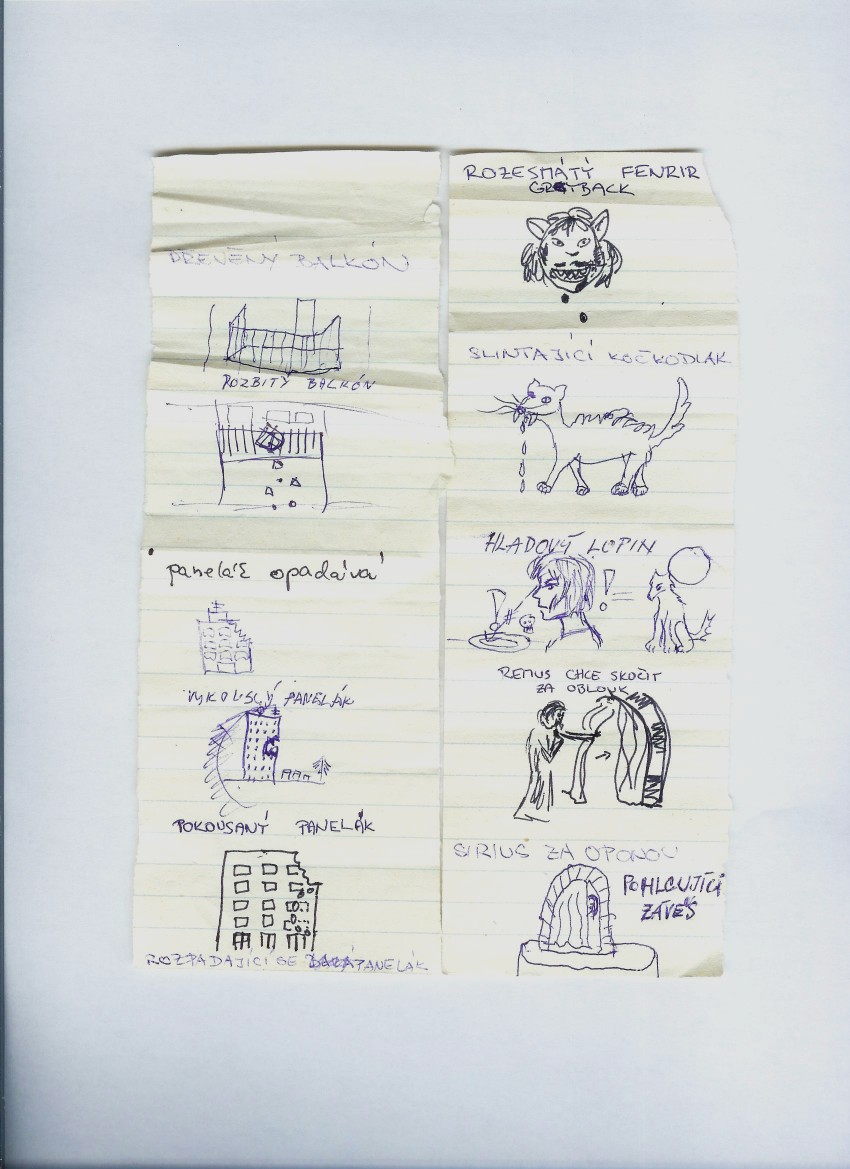 DŘEVĚNÝ BALKÓN
ROZBITÝ BALKÓN
paneläk opadává
VYKOUSLÝ PANELÁK
POKOUSANÝ PANELÁK
ROZPADAJÍCÍ SE PANELÁK
ROZESMÁTÝ FENRIR
GREYBACK
SLINTAJÍCÍ KOČKODLAK
HLADOVÝ LUPIN
! ! =
REMUS CHCE SKOČIT
ZA OBLOUK
SIRIUS ZA OPONOU
POHLCUJÍCÍ
ZÁVĚS